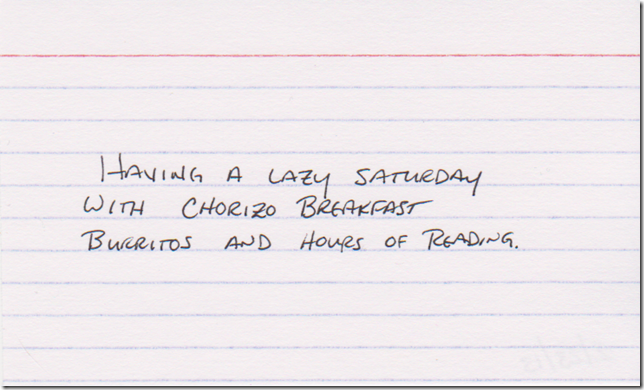 Having a lazy Saturday
with Chorizo Breakfast
Burritos and Hours of Reading.